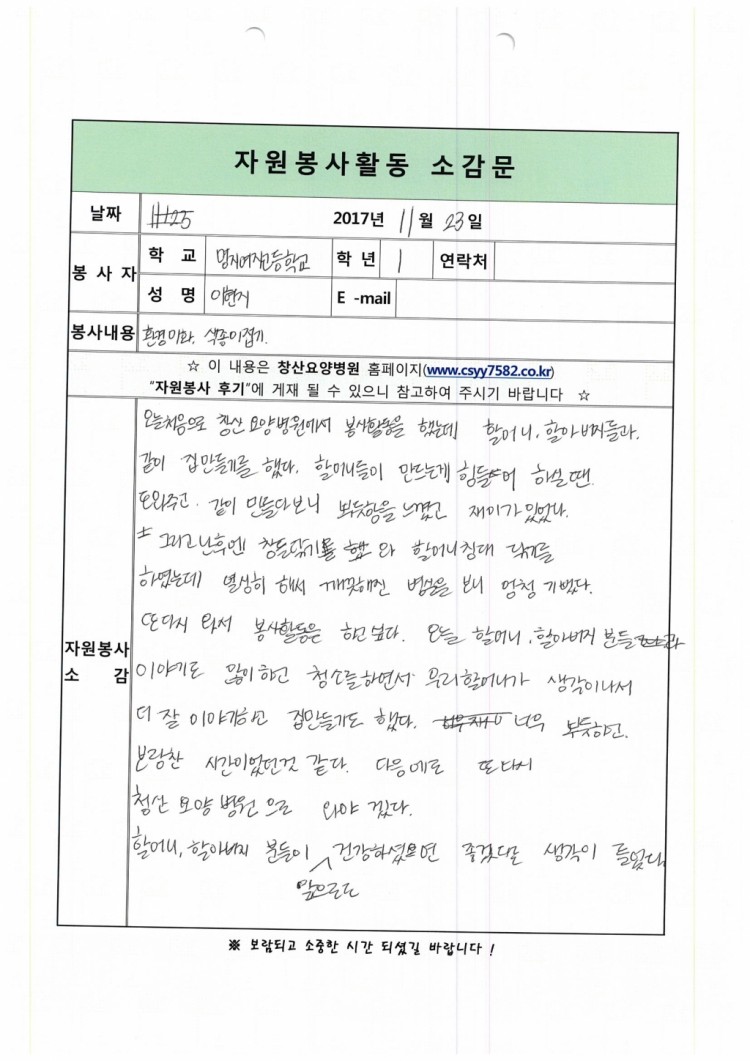 자원봉사활동 소감문
날짜 2017년 11월 23일
봉사자 학교 명지여자고등학교 학년 1 연락처
성명 이현지 E -mail
봉사내용 환경미화, 색종이접기.
☆ 이 내용은 창산요양병원 홈페이지(www.csyy7582.co.kr)
"자원봉사 후기"에 게재 될 수 있으니 참고하여 주시기 바랍니다 ☆
자원봉사 소감
오늘처음으로 창산 요양병원에서 봉사활동을 했는데 할머니, 할아버지들과.
같이 집만들기를 했다. 할머니들이 만드는게 힘들어 하실땐
도와주고. 같이 만들다보니 뿌듯함을 느꼈고 재미가 있었다.
그리고 난후엔 창틀닦기 와 할머니침대 닦기를
하였는데 열심히 해서 깨끗해진 병실을 보니 엄청 기뻤다.
또다시 와서 봉사활동은 하고 싶다. 오늘 할머니, 할아버지 분들과
이야기도 많이하고 청소를하면서 우리할머니가 생각이나서
더 잘 이야기하고 집만들기도 했다. 너무 뿌듯하고.
보람찬 시간이었던것 같다. 다음에도 또다시
청산 요양 병원 으로 와야 겠다.
할머니, 할아버지 분들이 앞으로도 건강하셨으면 좋겠다는 생각이 들었다.
※ 보람되고 소중한 시간 되셨길 바랍니다 !